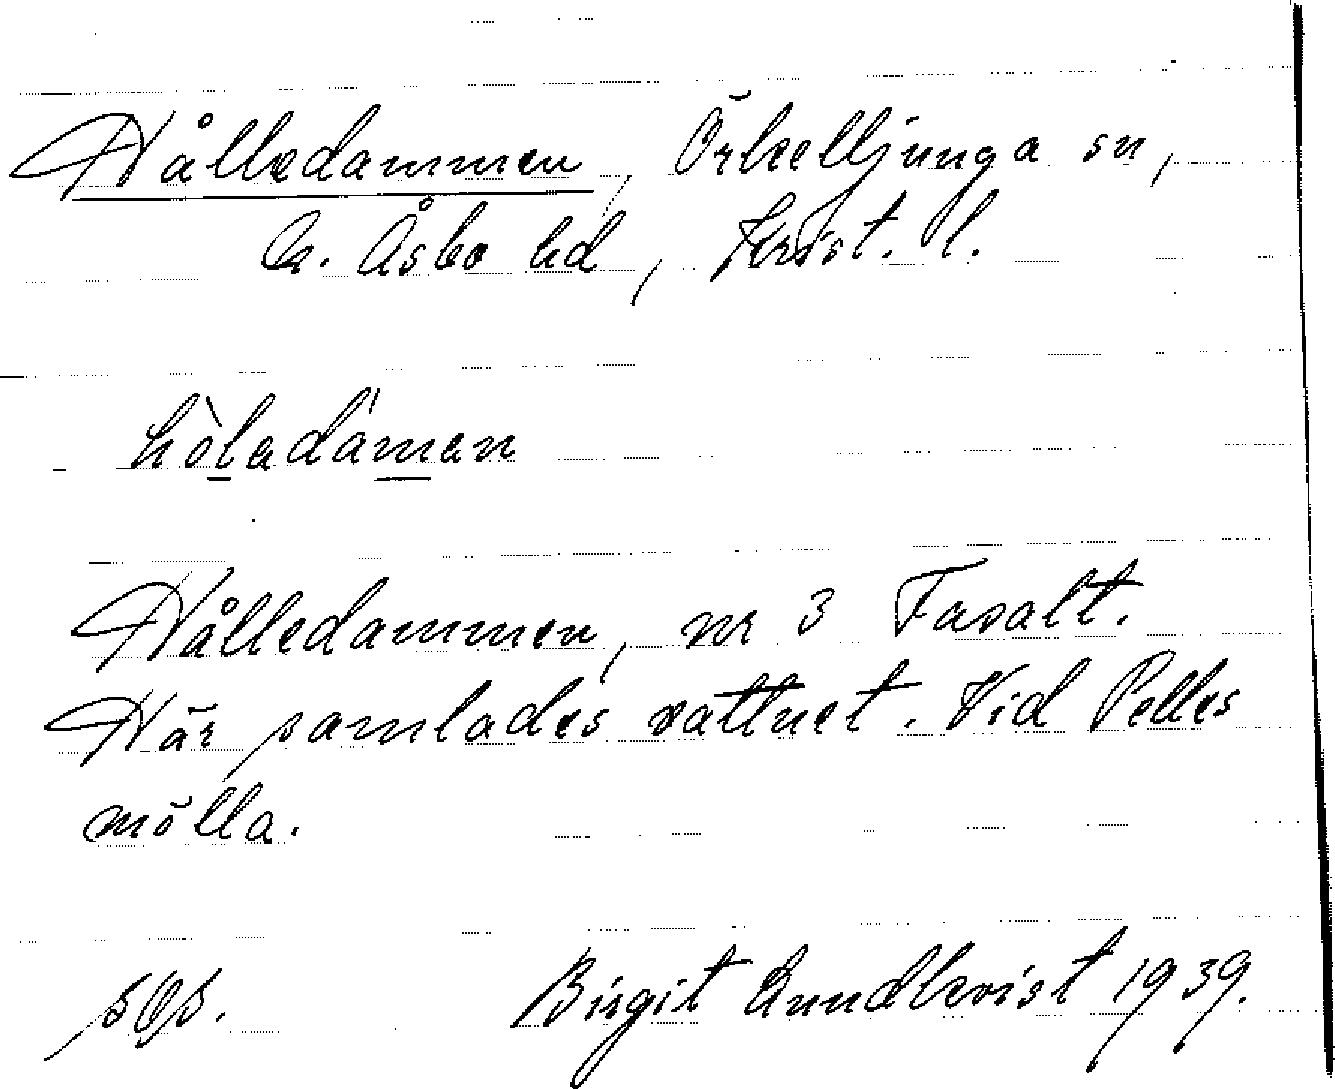 Hålledammen, Örkelljunga sn,
N. Åsbo hd, Krist. l.
hòladámen
Hålledammen, nr 3 Fasalt.
Här samlades vattnet. Vid Pelles
mölla.
Birgit Lundkvist 1939.